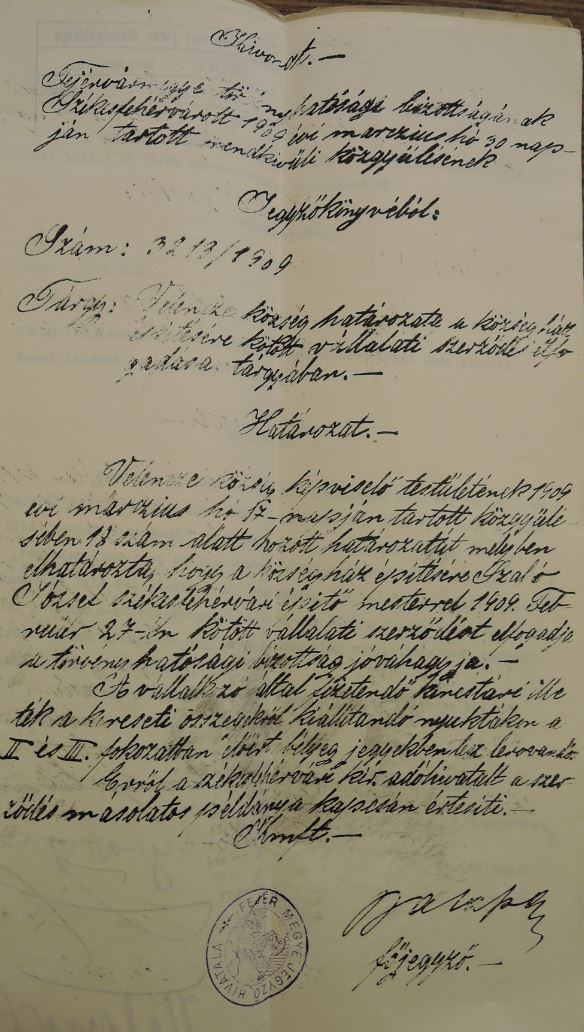 Kivonat.—
Fejérvármegye törvényhatósági bizottságának
Székesfehérvárott 1909 évi marczius hó 30 nap-
ján tartott rendkivüli közgyülésének
Jegyzőkönyvéből:
Szám: 3213/1909
Tárgy: Velencze község határozata a községház
építésére kötött vállalati szerződés elfo-
gadása tárgyában.—
Határozat.—
Velencze község képviselő testületének 1909
évi márczius hó 17-napján tartott közgyülé-
sében 18 szám alatt hozott határozatát melyben
elhatározta, hogy a községház építésére Szabó
József székesfehérvári építő mesterrel 1909. Feb-
ruár 27-én kötött vállalati szerződést elfogadja
a törvényhatósági bizottság jóváhagyja.—
A vállalkozó által fizetendő kincstári ille-
ték a kereseti összegekről kiállítandó nyugtákon a
II és III. fokozatban előirt bélyeg jegyekben lesz lerovandó.
Erről a székesfehérvári kir. adóhivatalt a szer-
ződés másolatos példánya kapcsán értesiti.—
Kmft.—
főjegyző.—
FEJÉR MEGYE JEGYZŐ HIVATALA